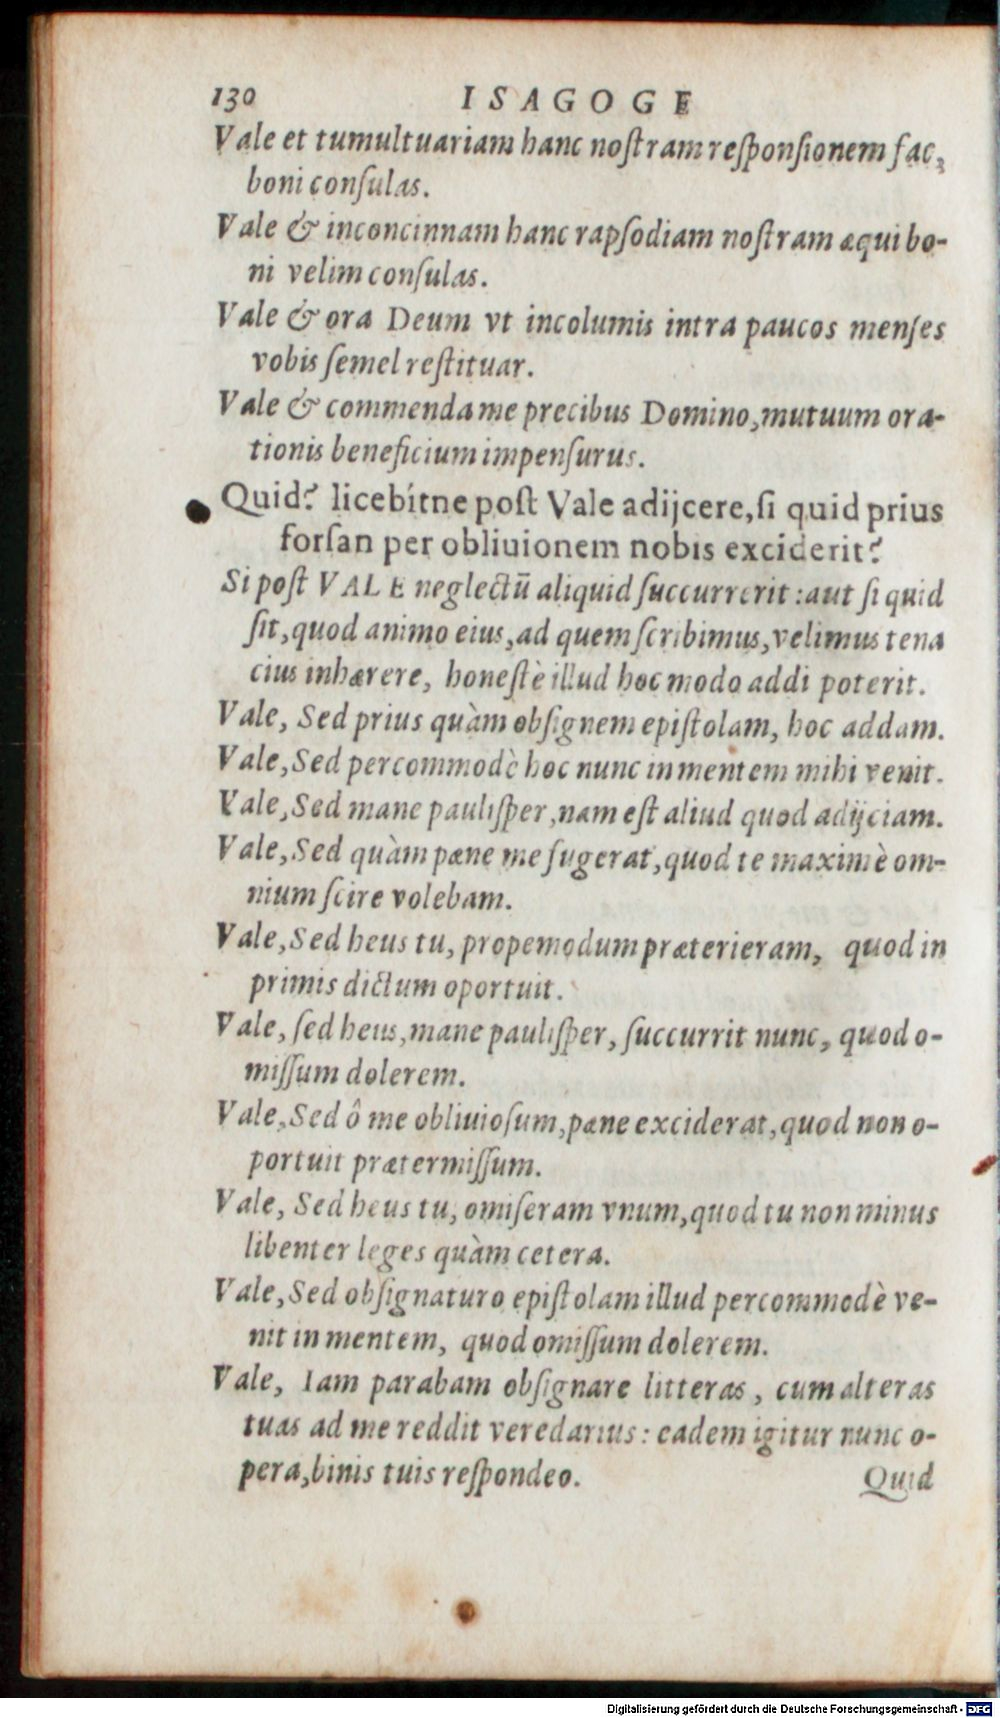 130 ISAGOGE
Vale et tumultuariam hanc noſtram reſponſionem fac,
boni conſulas.
Vale & inconcinnam hanc rapſodiam noſtram æqui bo-
ni velim conſulas.
Vale & ora Deum vt incolumis intra paucos menſes
vobis ſemel reſtituar.
Vale & commenda me precibus Domino, mutuum ora-
tionis beneficium impenſurus.
Quid? licebítne poſt Vale adijcere, ſi quid prius
forſan per obliuionem nobis exciderit?
Si poſt VALE neglectū aliquid ſuccurrerit: aut ſi quid
ſit, quod animo eius, ad quem ſcribimus, velimus tena
cius inhærere, honeſtè illud hoc modo addi poterit.
Vale, Sed prius quàm obſignem epiſtolam, hoc addam.
Vale, Sed percommodè hoc nunc in mentem mihi venit.
Vale, Sed mane pauliſper, nam eſt aliud quod adijciam.
Vale, Sed quàm pæne me fugerat, quod te maximè om-
nium ſcire volebam.
Vale, Sed heus tu, propemodum præterieram, quod in
primis dictum oportuit.
Vale, ſed heus, mane pauliſper, ſuccurrit nunc, quod o-
miſſum dolerem.
Vale, Sed ô me obliuioſum, pæne exciderat, quod non o-
portuit prætermiſſum.
Vale, Sed heus tu, omiſeram vnum, quod tu non minus
libenter leges quàm cetera.
Vale, Sed obſignaturo epiſtolam illud percommodè ve-
nit in mentem, quod omiſſum dolerem.
Vale, Iam parabam obſignare litteras, cum alteras
tuas ad me reddit veredarius: eadem igitur nunc o-
pera, binis tuis reſpondeo. Quid
Digitalisierung gefördert durch die Deutsche Forschungsgemeinschaft - DFG